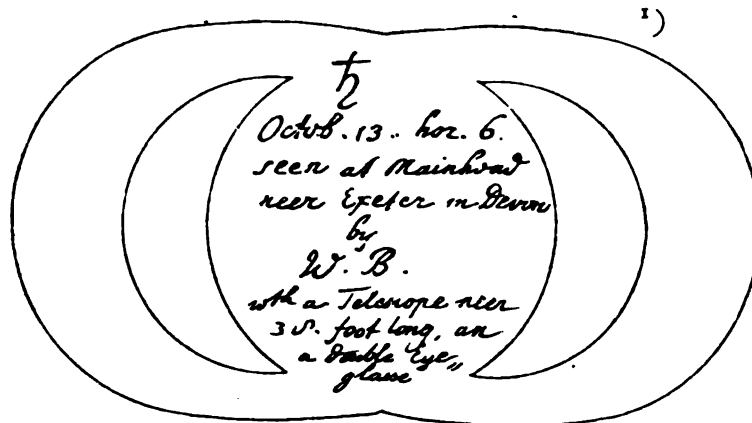 1)
♄
Octob. 13. hor. 6.
seen at Mainhead
neer Exeter in Devon
by
W. B.
wth a Telescope neer
38. foot long, an
a double Eye„
glasse